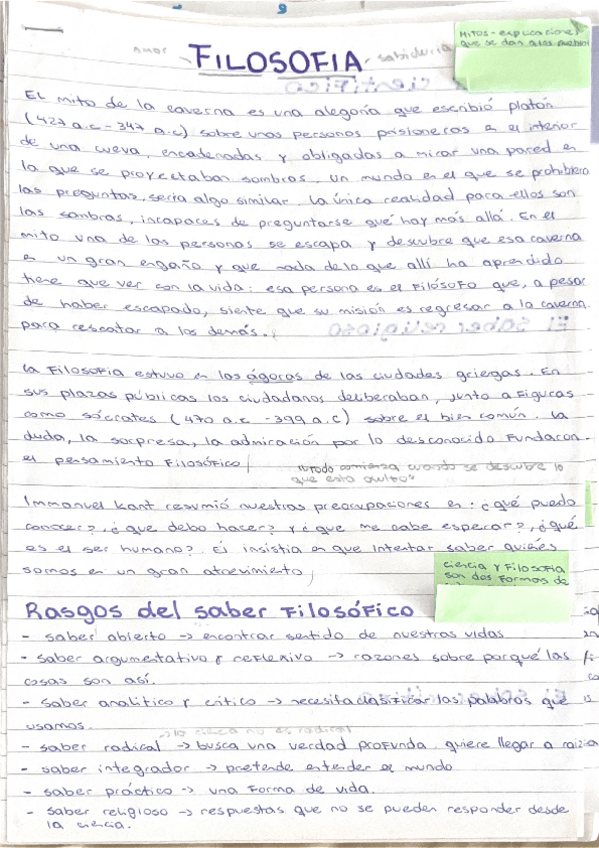 Amor
FILOSOFIA
sabiduria
Mitos - explicaciones
que se dan a los pueblos
EL mito de la caverna es una alegoría que escribió platón
(427 a.c - 347 a.c) sobre unas personas prisioneras en el interior
de una cueva, encadenadas y obligadas a mirar una pared en
la que se proyectaban sombras. Un mundo en el que se prohibiera
las preguntas, seria algo similar. La única realidad para ellos son
las sombras, incapaces de preguntarse qué hay más allá. En el
mito una de las personas se escapa y descubre que esa caverna
es un gran engaño y que nada de lo que allí ha aprendido
tiene que ver con la vida: esa persona es el filósofo que, a pesar
de haber escapado, siente que su misión es regresar a la caverna
para rescatar a los demás.
La Filosofia estuvo en las ágoras de las ciudades griegas. En
sus plazas públicas los ciudadanos deliberaban, junto a figuras
como sócrates (470 a.c - 399 a.c) sobre el bien común. La
duda, la sorpresa, la admiración por lo desconocido fundaron
el pensamiento filosófico
"Todo comienza cuando se descubre lo
que esta oculto"
Immanuel Kant resumió nuestras preocupaciones en: ¿qué puedo
conocer?, ¿que debo hacer? y ¿que me cabe esperar?, ¿qué
es el ser humano? El insistia en que intentar saber quiénes
somos es un gran atrevimiento
ciencia y Filosofia
son dos formas de
Rasgos del saber Filosófico
- saber abierto → encontrar sentido de nuestras vidas
- saber argumentativo y reflexivo → razones sobre porqué las
cosas son así.
- saber analitico y critico → necesita clasificar las palabras que
usamos.
→ la ciencia no es radical
- saber radical → busca una verdad profunda. quiere llegar a
- saber integrador → pretende entender el mundo
- saber práctico → una forma de vida.
- saber religioso → respuestas que no se pueden responder desde
la ciencia.